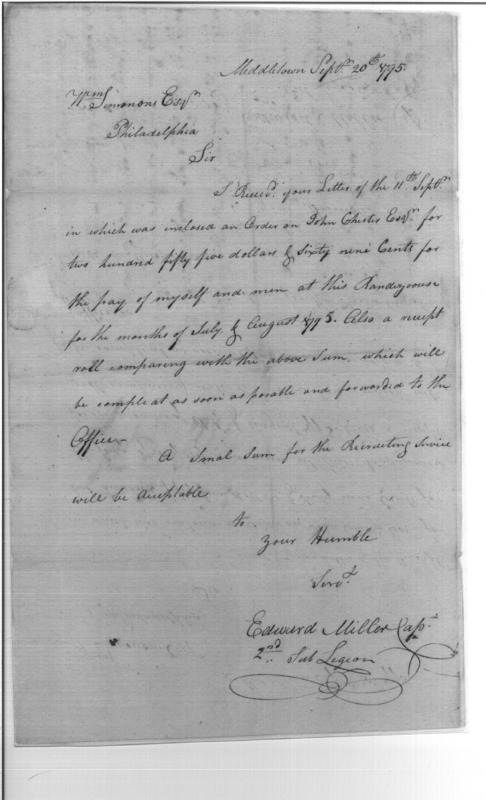 Middletown Septr. 20th 1795.
Wm Simonons Esqr
Philadelphia
Sir
I Recevd. your Letter of the 11th Septr.
in which was inclosed an Order on John Chester Esqr. for
two hundred fifty five dollars & Sixty nine Cents for
the pay of myself and men at this Randezvouse
for the months of July & August 1795. Also a receipt
roll comparing with the above Sum, which will
be compleat as soon as posable and forwarded to the
Office—
A Smal Sum for the Recruiting Service
will be acceptable
to
your Humble
Servt.
Edward Miller Capt.
2nd Sub Legion